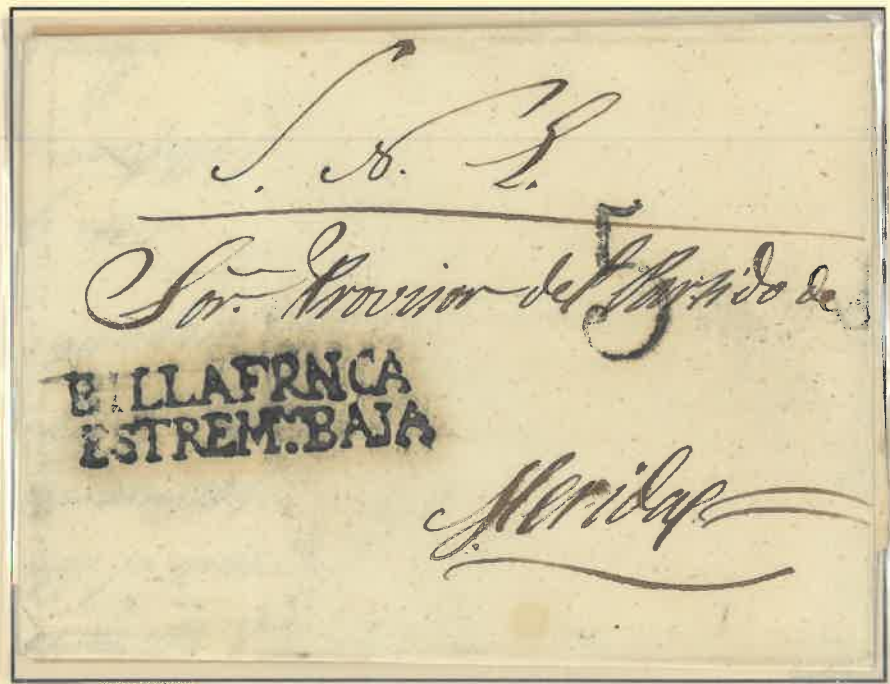 S. N. L.
5
Sor. Provisor del Partido de
BILLAFRNCA
ESTREM.ª BAJA
Merida